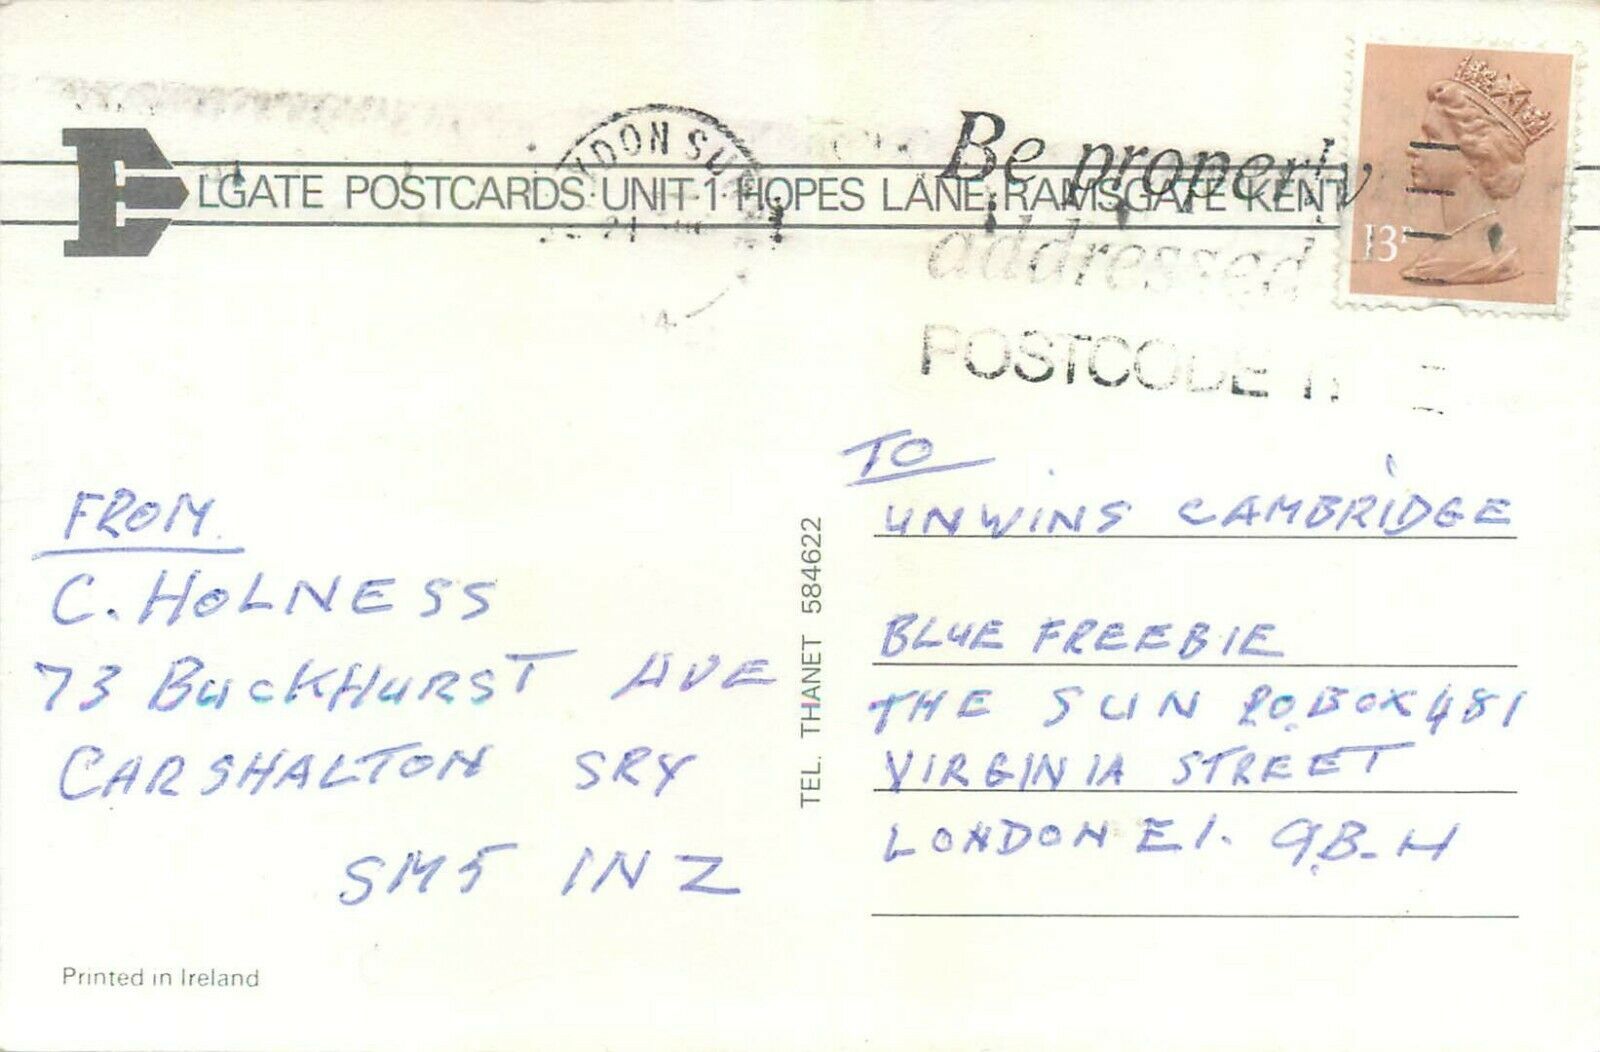 ELGATE POSTCARDS: UNIT 1 HOPES LANE, RAMSGATE KENT
YDON SU
Be properly
addressed
POSTCODE IT
13P
TO
UNWINS CAMBRIDGE
BLUE FREEBIE
THE SUN P.O. BOX 481
VIRGINIA STREET
LONDON E1. 9.B.H
FROM
C. HOLNESS
73 BUCKHURST AVE
CARSHALTON SRY
SM5 1NZ
TEL. THANET 584622
Printed in Ireland